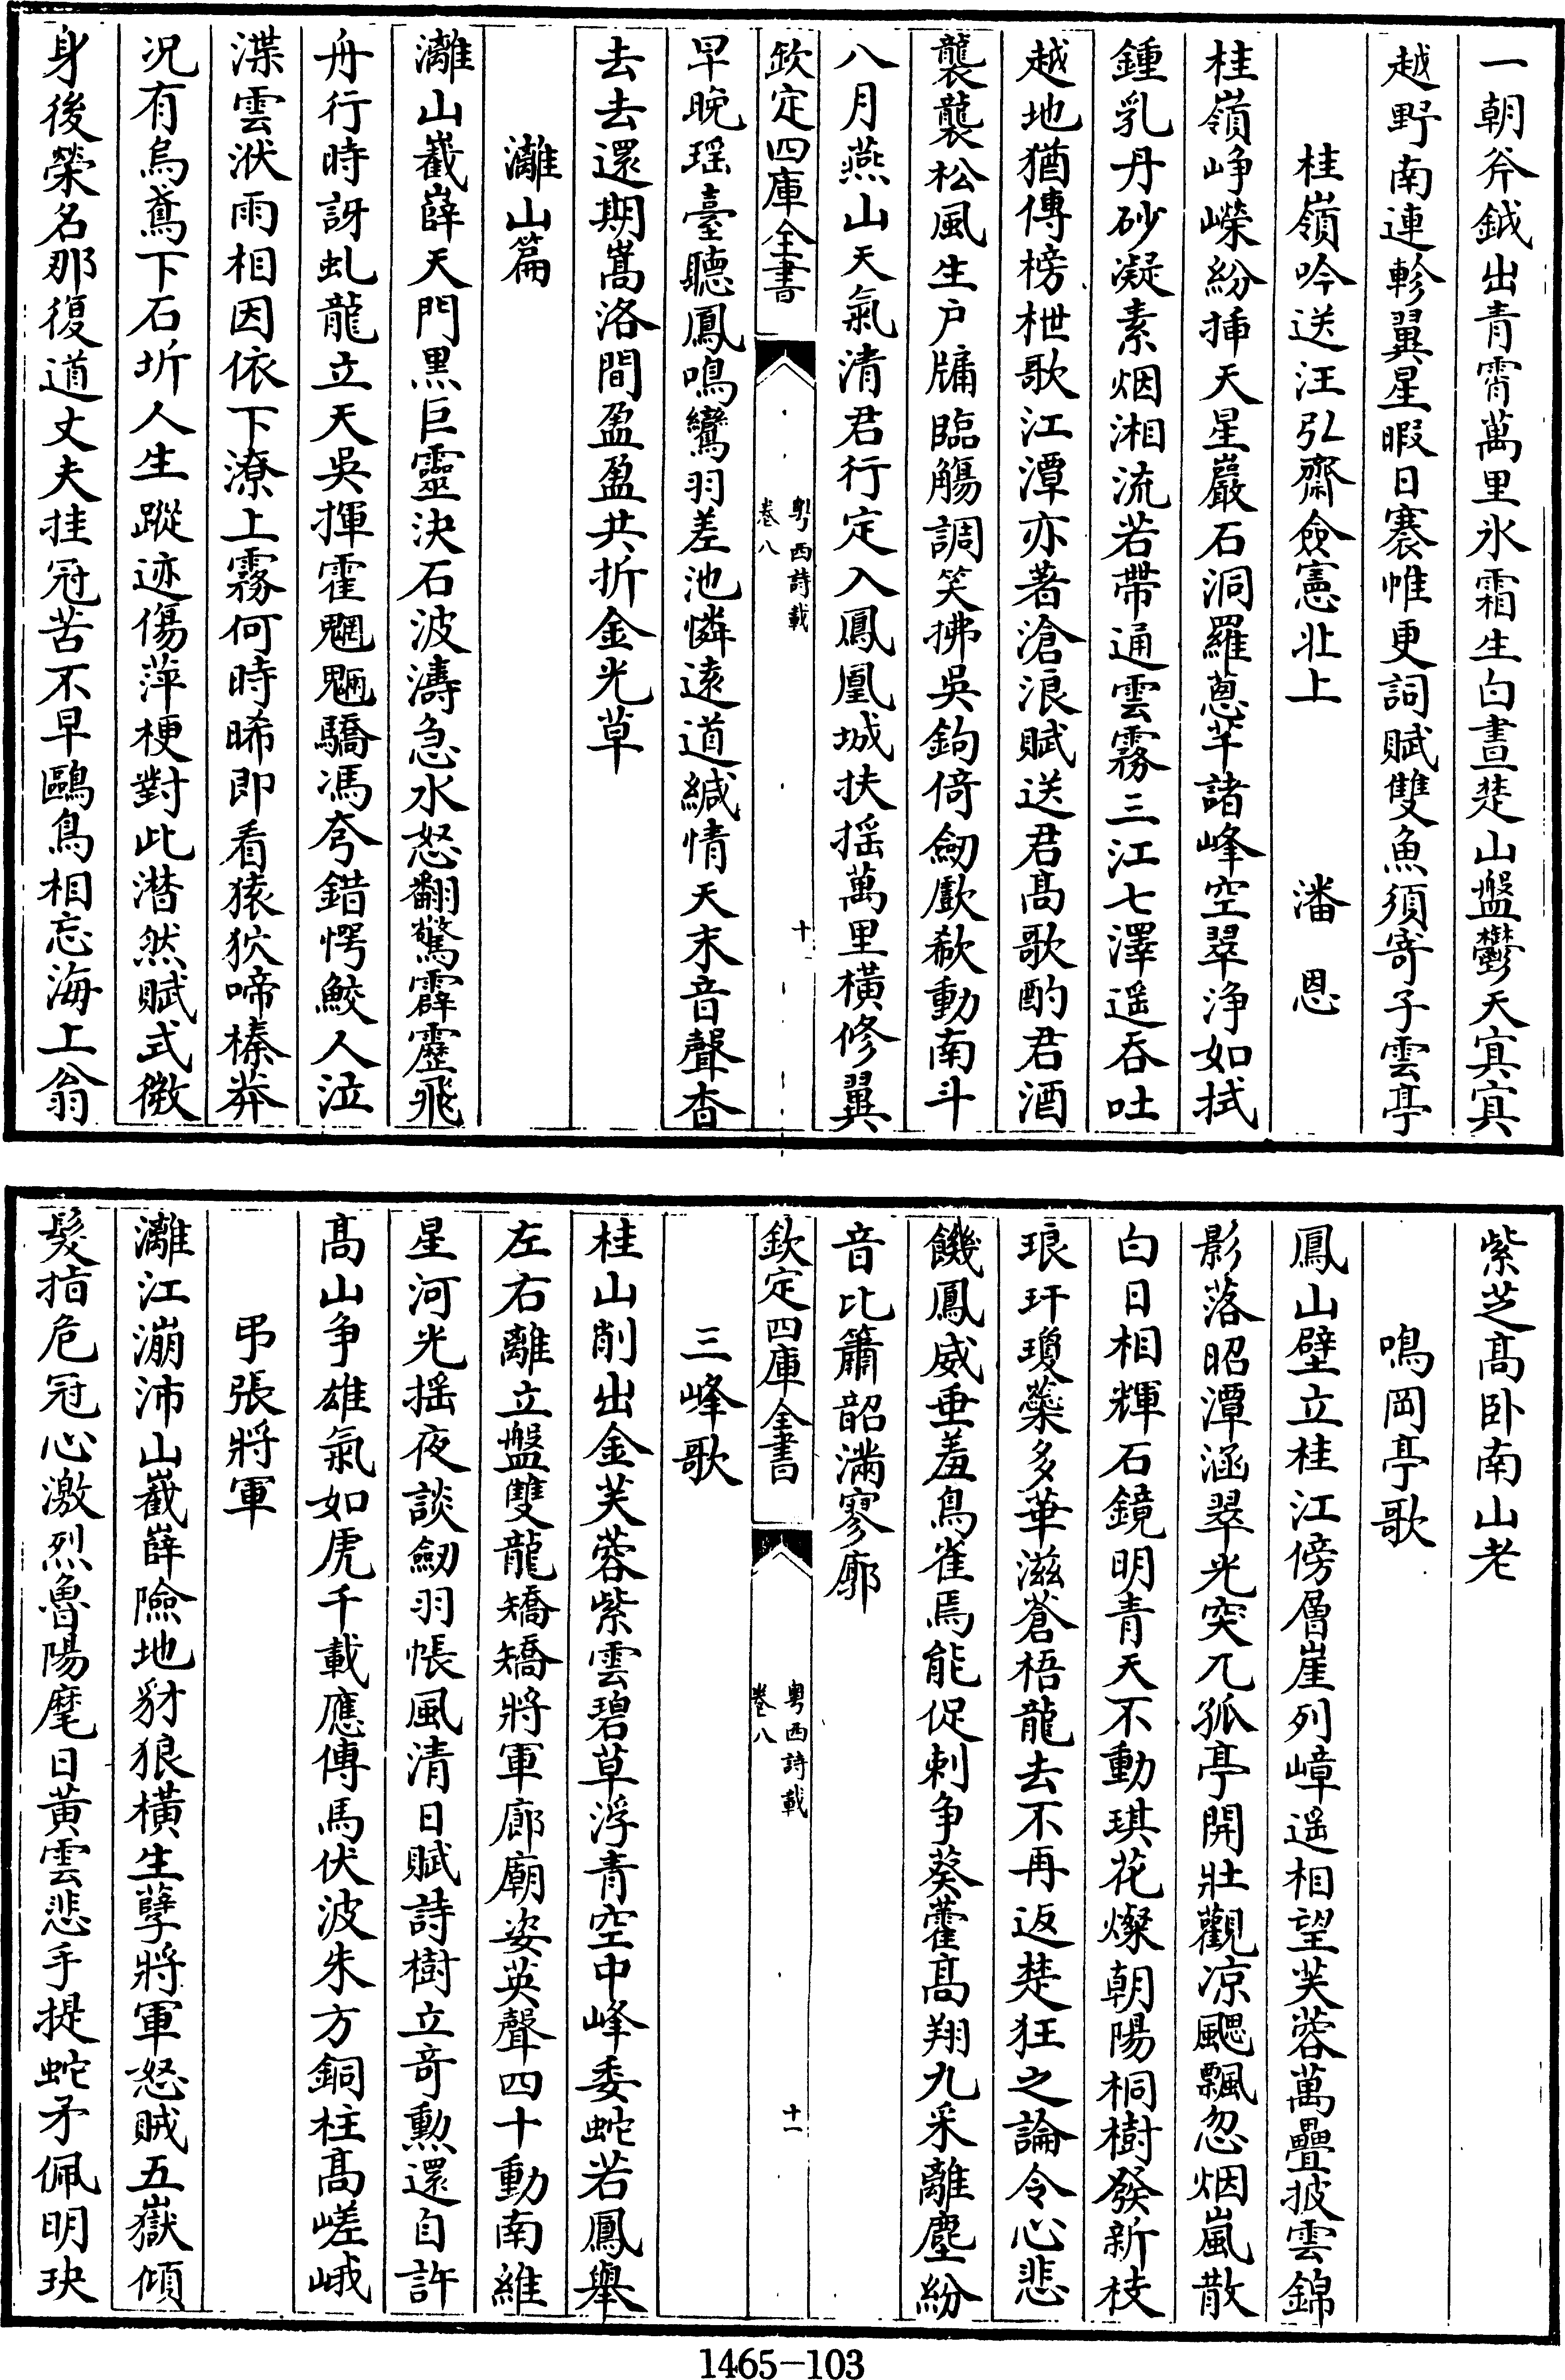 一朝斧鉞出青霄萬里氷霜生白晝楚山盤鬱天寘寘
越野南連軫翼星暇日褰帷更詞賦雙魚須寄子雲亭
桂嶺吟送汪弘齋僉憲北上 潘恩
桂嶺崢嶸紛揷天星巖石洞羅蔥芊諸峰空翠浄如拭
鍾乳丹砂凝素烟湘流若帶通雲霧三江七澤遥吞吐
越地猶傳榜枻歌江潭亦著滄浪賦送君髙歌酌君酒
襲襲松風生户牗臨觴調笑拂吳鉤倚劒歔欷動南斗
八月燕山天氣清君行定入鳳凰城扶揺萬里橫修翼
欽定四庫全書 粤西詩載 卷八 十
早晚瑶臺聽鳳鳴鸞羽差池憐逺道緘情天末音聲杳
去去還期嵩洛間盈盈共折金光草
灕山篇
灕山嶻嶭天門黑巨靈決石波濤急水怒翻驚霹靂飛
舟行時訝虬龍立天吳揮霍魍魎驕馮夸錯愕鮫人泣
渫雲洑雨相因依下潦上霧何時晞即看猿狖啼榛莽
况有烏鳶下石圻人生蹤迹傷萍梗對此潛然賦式微
身後榮名那復道丈夫挂冠苦不早鷗鳥相忘海上翁
紫芝髙卧南山老
鳴岡亭歌
鳳山壁立桂江傍層崖列嶂遥相望芙蓉萬疊披雲錦
影落昭潭涵翠光突兀孤亭開壯觀凉颸飄忽烟嵐散
白日相輝石鏡明青天不動琪花燦朝陽桐樹發新枝
琅玕瓊蘂多華滋蒼梧龍去不再返楚狂之論令心悲
饑鳳威垂羞鳥雀焉能促刺争葵藿髙翔九采離塵紛
音比簫韶滿寥廓
欽定四庫全書 粤西詩載 卷八 十一
三峰歌
桂山削出金芙蓉紫雲碧草浮青空中峰委蛇若鳳舉
左右離立盤雙龍矯矯將軍廊廟姿英聲四十動南維
星河光揺夜談劒羽帳風清日賦詩樹立竒勲還自許
髙山争雄氣如虎千載應傳馬伏波朱方銅柱髙嵯峨
弔張將軍
灕江漰沛山嶻嶭險地豺狼橫生孽將軍怒賊五嶽傾
髮指危冠心激烈魯陽麾日黄雲悲手提蛇矛佩明玦
1465-103